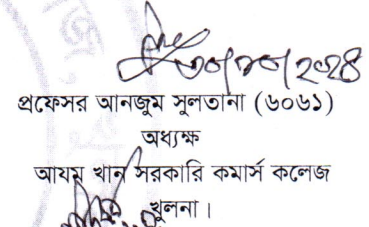 ৩০/১০/২০২৪
প্রফেসর আনজুম সুলতানা (৬০৬১)
অধ্যক্ষ
আযম খান সরকারি কমার্স কলেজ
খুলনা।